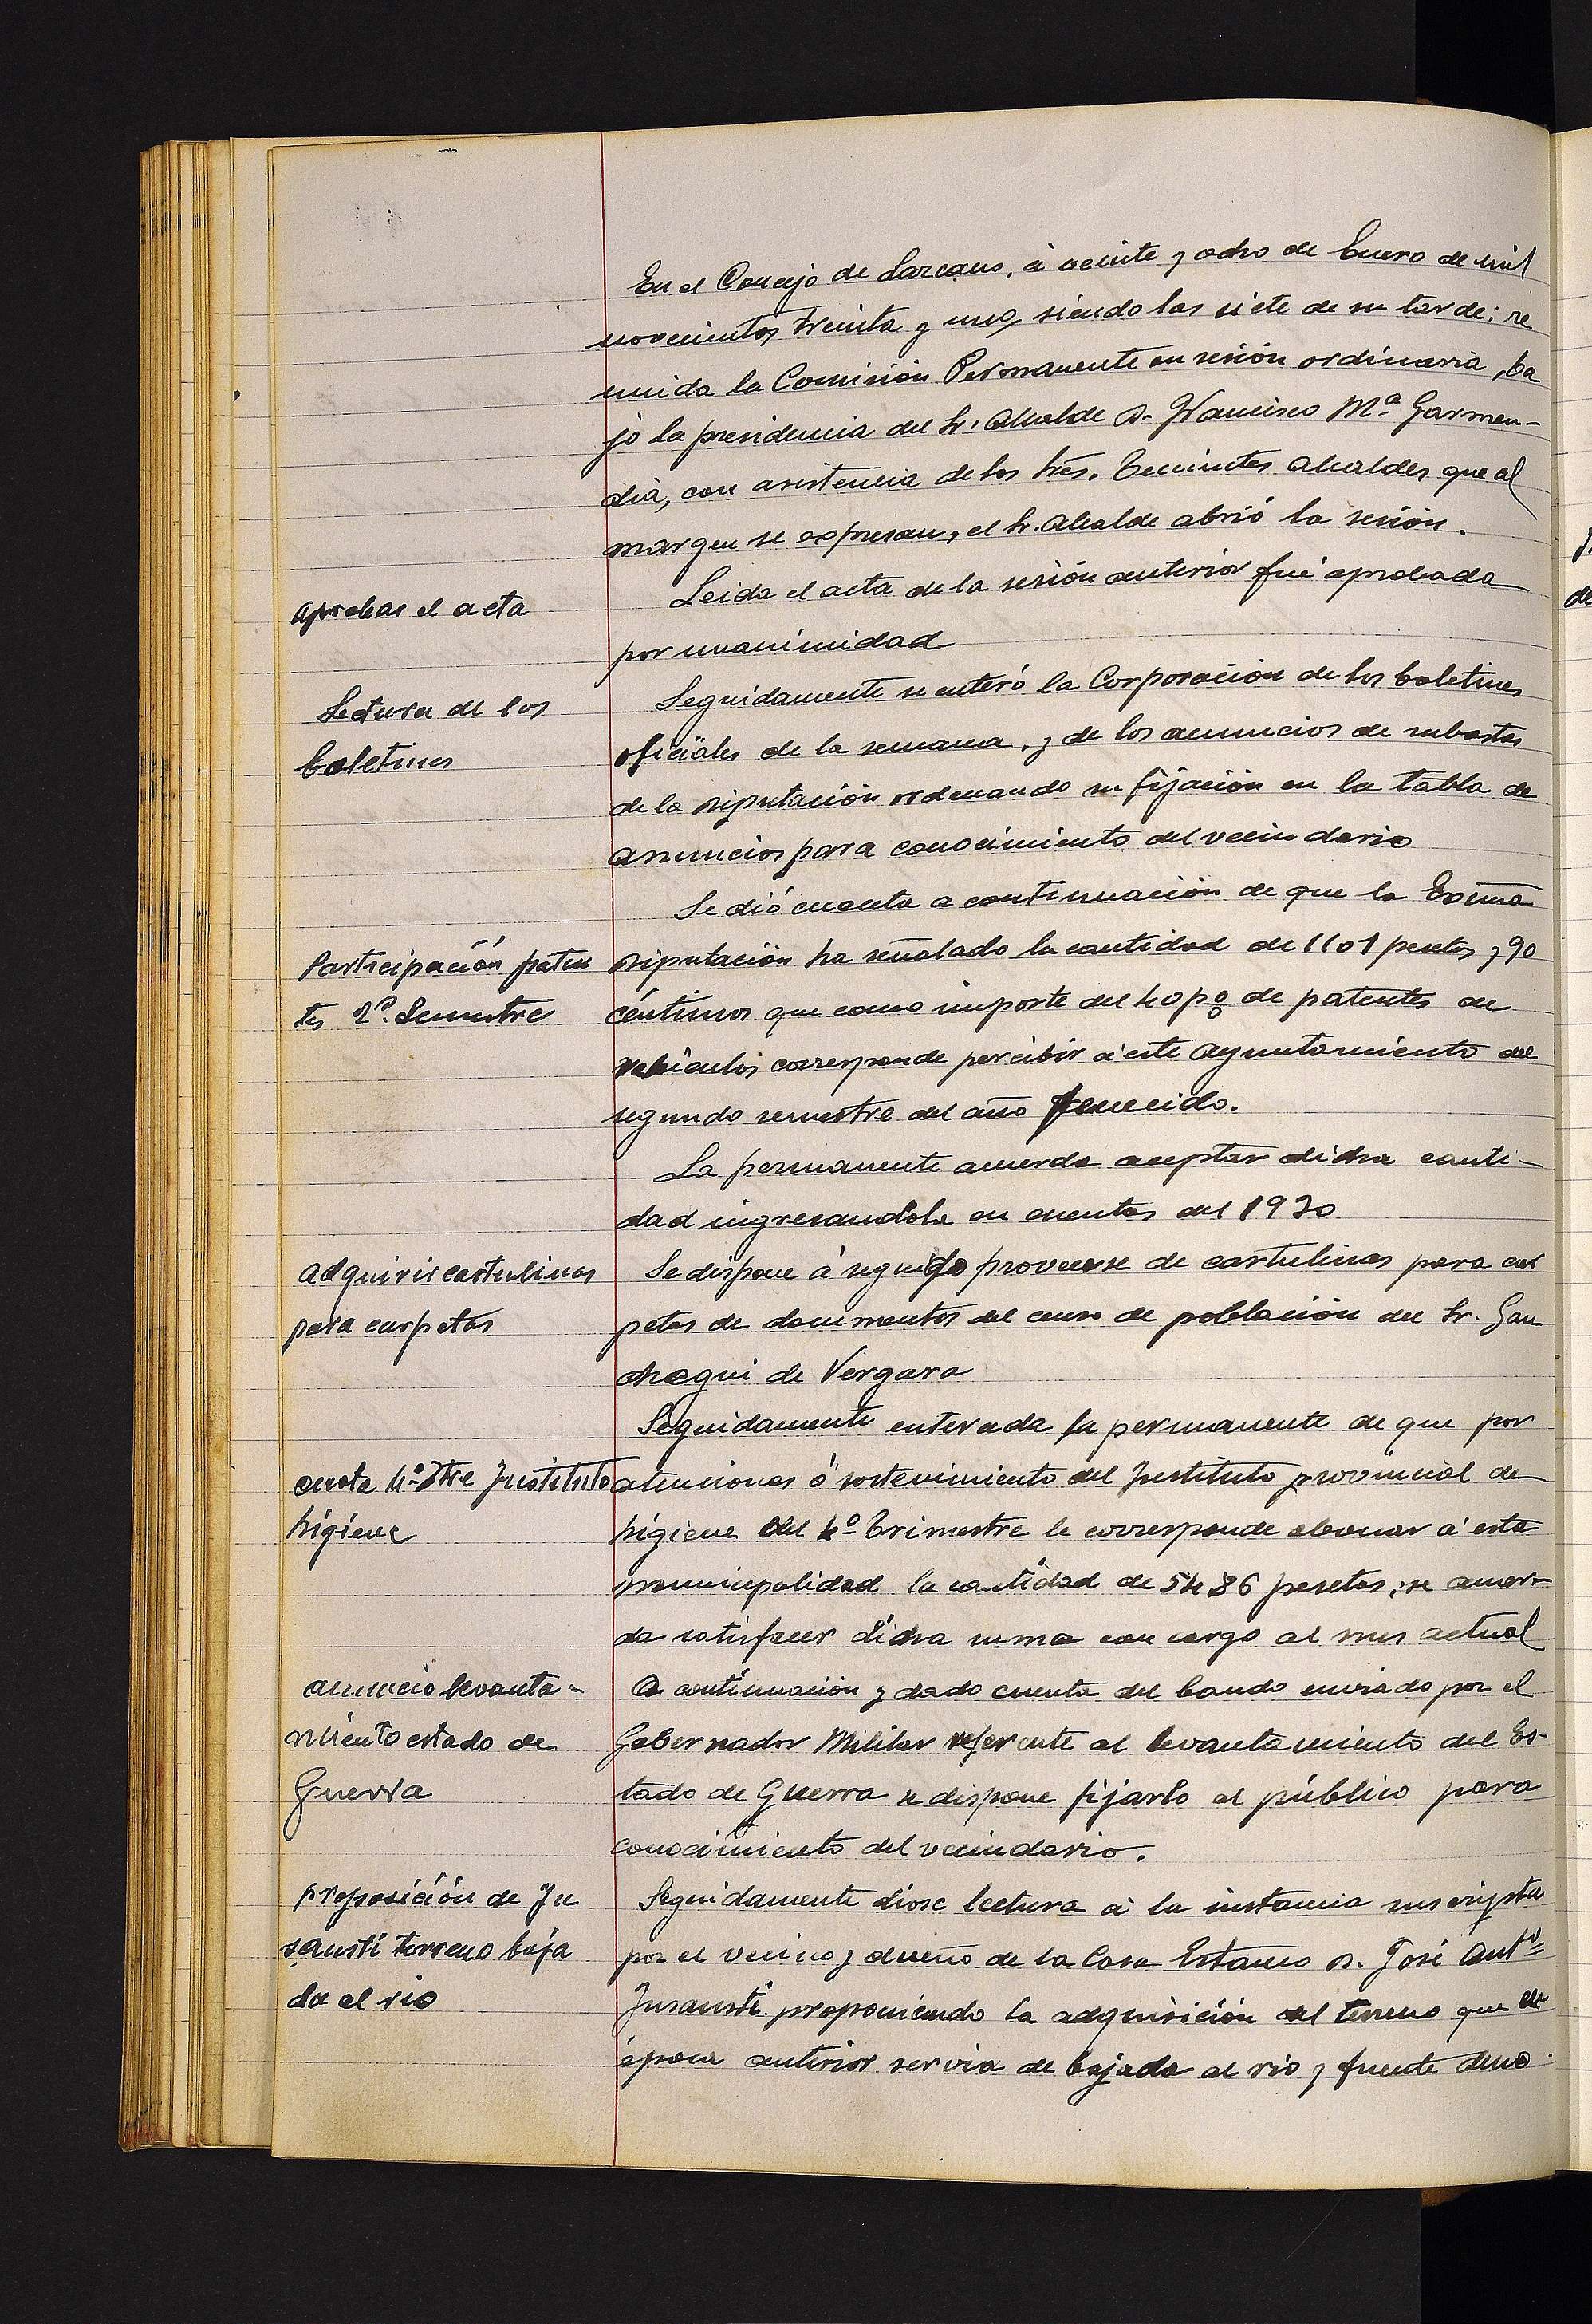 En el Concejo de Lazcano, á veinte y ocho de Enero de mil
novecientos treinta y uno, siendo las siete de su tarde: re
unida la Comisión Permanente en sesión ordinaria, ba
jo la presidencia del Sr. Alcalde D. Francisco Mª Garmen-
dia, con asistencia de los Sres. Tenientes Alcaldes que al
margen se expresan, el Sr. Alcalde abrió la sesión.
Aprobar el acta
Leida el acta de la sesión anterior fué aprobada
por unanimidad
Lectura de los
boletines
Seguidamente se enteró la Corporación de los boletines
oficiales de la semana, y de los anuncios de subastas
de la Diputación ordenando su fijación en la tabla de
anuncios para conocimiento del vecindario
Se dió cuenta a continuación de que la Exma
Participación paten
tes 2º Semestre
Diputación ha señalado la cantidad de 1101 pesetas y 90
céntimos que como importe del 40 p% de patentes de
vehiculos corresponde percibir á este Ayuntamiento del
segundo semestre del año fenecido.
La permanente acuerda aceptar dicha canti-
dad ingresandola en cuentas del 1930
Adquirir cartulinas
para carpetas
Se dispone á seguido proveerse de cartulinas para car
petas de documentos del censo de población del Sr. Gan
chegui de Vergara
Seguidamente enterada la permanente de que por
cuota 4º Tre Instituto
higiene
atenciones ó sostenimiento del Instituto provincial de
higiene del 4º trimestre le corresponde abonar á esta
municipalidad la cantidad de 54,86 pesetas, se acuer-
da satisfacer dicha suma con cargo al mes actual
anuncio levanta-
miento estado de
Guerra
A continuación y dado cuenta del bando enviado por el
Gobernador Militar referente al levantamiento del Es-
tado de Guerra se dispone fijarlo al público para
conocimiento del vecindario.
Proposición de In
sausti terreno baja
da al rio
Seguidamente diose lectura á la instancia suscripta
por el vecino y dueño de la Casa Estanco D. José Antº
Insausti proponiendo la adquisición del terreno que en
época anterior servia de bajada al rio y fuente deno-